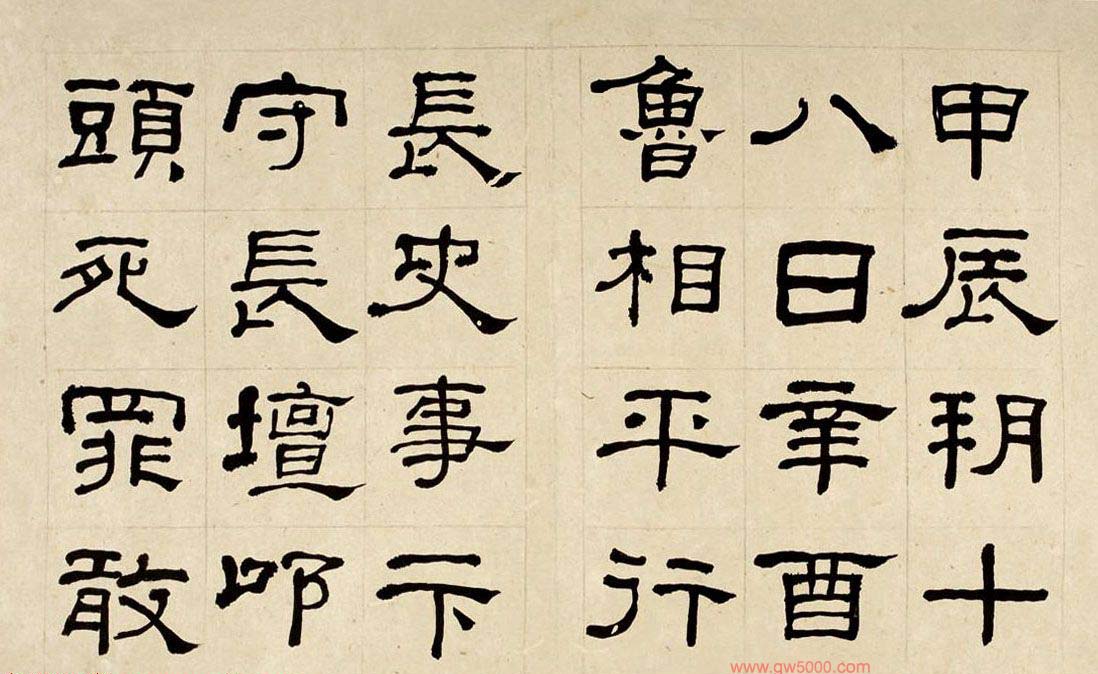 甲辰玥十
八日辛酉
魯相平行
長史事卞
守長壇叩
頭死罪敢
www.gw5000.com